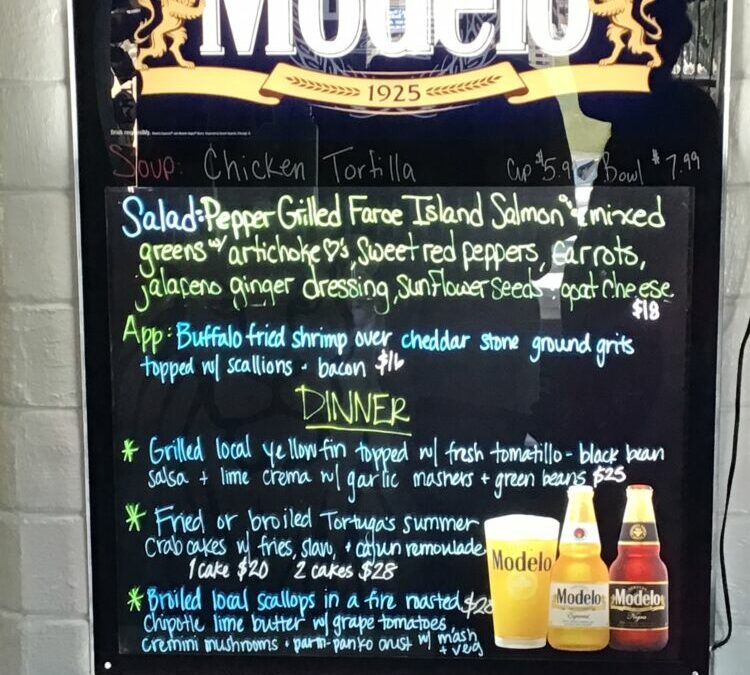 Modelo
1925
Soup: Chicken Tortilla Cup $5.99 Bowl $7.99
Salad: Pepper Grilled Faroe Island Salmon mixed
greens w/ artichoke ♡'s, Sweet red peppers, carrots,
jalapeno ginger dressing, Sunflower Seeds goat cheese
$18
App: Buffalo fried shrimp over cheddar stone ground grits
topped w/ scallions - bacon $16
DINNER
* Grilled local yellowfin topped w/ fresh tomatillo - black bean
salsa + lime crema w/ garlic mashers + green beans $25
* Fried or broiled Tortuga's summer
crab cakes w/ fries, slaw, + cajun remoulade
1 cake $20 2 cakes $28
* Broiled local scallops in a fire roasted $28
chipotle lime butter w/ grape tomatoes
cremini mushrooms + parm-panko crust w/ mash
+ veg
Modelo
Modelo
Especial
Modelo
Negra